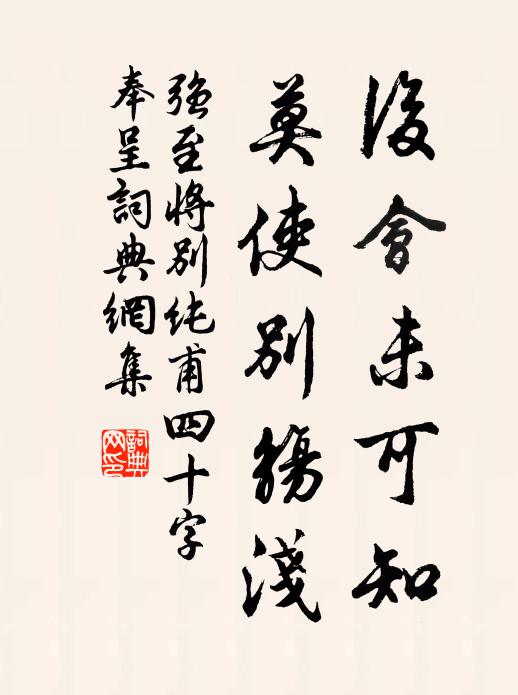 後會未可知
莫使別觴淺
強至將別純甫四十字
奉呈詞典網集
詞典網印